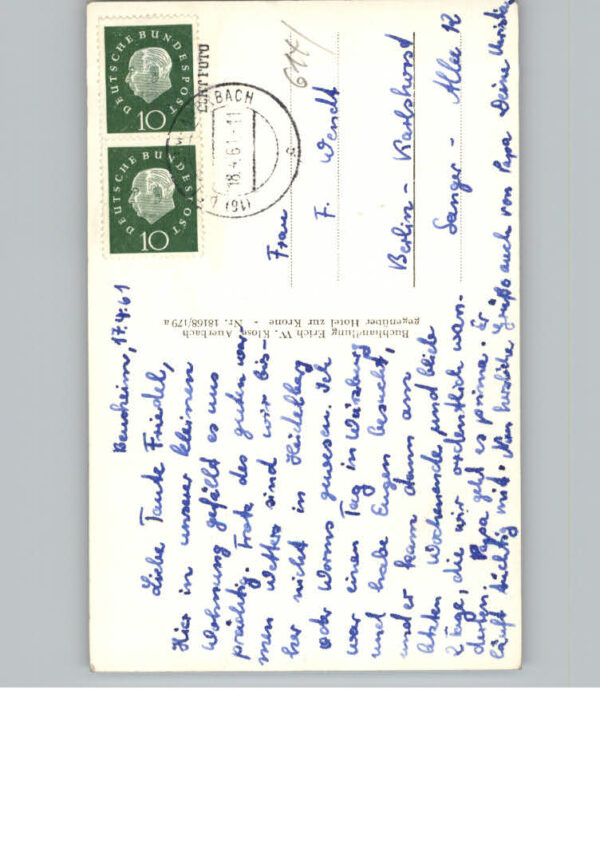 Bensheim, 17.4.61
Liebe Tante Friedel,
Hier in unserer kleinen
Wohnung gefällt es uns
prächtig. Trotz des guten war-
men Wetters sind wir bis-
her nicht in Heidelberg
oder Worms gewesen. Ich
war einen Tag in Würzburg
und habe Eugen besucht,
und er kam dann am
letzten Wochenende und blieb
2 Tage, die wir ordentlich wan-
derten. Papa geht es prima. Er
läuft tüchtig mit. Nun herzliche Grüße auch von Papa Deine
Buchhandlung Erich W. Klose, Auerbach
gegenüber Hotel zur Krone - Nr. 18168/179a
DEUTSCHE BUNDESPOST
10
DEUTSCHE BUNDESPOST
10
18.4.61-11
(16)
614/
Frau
F. Wendt
Berlin - Karlshorst
Sanger - Allee 12